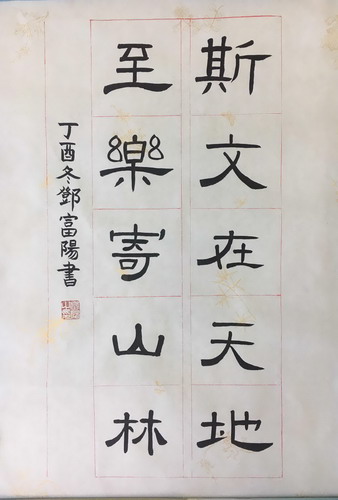 斯文在天地
至樂寄山林
丁酉冬鄧富陽書